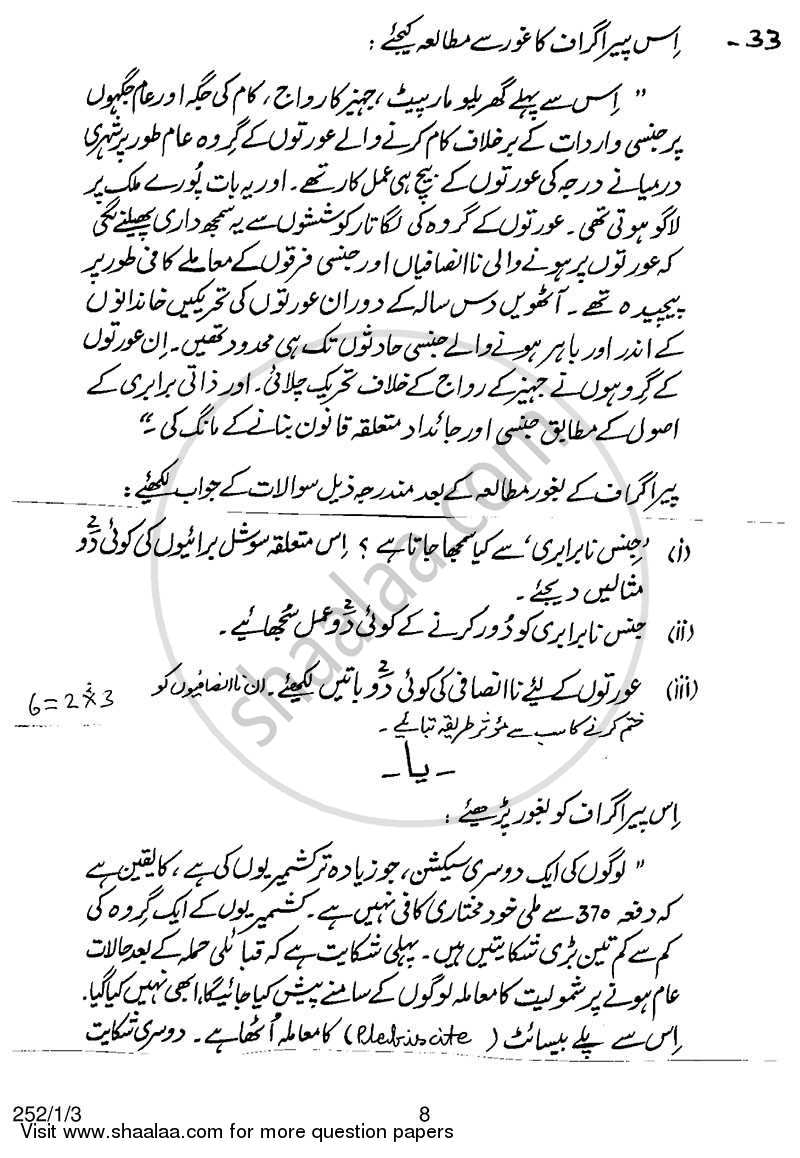 33- اِس پیراگراف کا غور سے مطالعہ کیجئے :
" اِس سے پہلے گھریلو مارپیٹ ، جہیز کا رواج ، کام کی جگہ اور عام جگہوں
پر جنسی واردات کے برخلاف کام کرنے والے عورتوں کے گروہ عام طور پر شہری
درمیانے درجہ کی عورتوں کے بیچ ہی عمل کار تھے ۔ اور یہ بات پُورے ملک پر
لاگو ہوتی تھی ۔ عورتوں کے گروہ کی لگاتار کوششوں سے یہ سمجھ داری پھیلنے لگی
کہ عورتوں پر ہونے والی ناانصافیاں اور جنسی فرقوں کے معاملے کافی طور پر
پیچیدہ تھے ۔ آٹھویں دس سالہ کے دوران عورتوں کی تحریکیں خاندانوں
کے اندر اور باہر ہونے والے جنسی حادثوں تک ہی محدود تھیں ۔ اِن عورتوں
کے گروہوں نے جہیز کے رواج کے خلاف تحریک چلائی ۔ اور ذاتی برابری کے
اصول کے مطابق جنسی اور جائداد متعلقہ قانون بنانے کے مانگ کی ۔"
پیراگراف کے بغور مطالعہ کے بعد مندرجہ ذیل سوالات کے جواب لکھئے :
(i) 'جنس نابرابری' سے کیا سمجھا جاتا ہے ؟ اِس متعلقہ سوشل برائیوں کی کوئی دو 2
مثالیں دیجئے ۔
(ii) جنس نابرابری کو دُور کرنے کے کوئی دو 2 عمل سُجھائیے ۔
(iii) عورتوں کے لئے ناانصافی کی کوئی دو 2 باتیں لکھئے ۔ ان ناانصافیوں کو
ختم کرنے کا سب سے مؤثر طریقہ بتائیے ۔
6=2×3
- یا -
اِس پیراگراف کو بغور پڑھیئے :
" لوگوں کی ایک دوسری سیکشن ، جو زیادہ تر کشمیریوں کی ہے ، کا یقین ہے
کہ دفعہ 370 سے ملی خود مختاری کافی نہیں ہے ۔ کشمیریوں کے ایک گروہ کی
کم سے کم تین بڑی شکایتیں ہیں ۔ پہلی شکایت ہے کہ قبائلی حملہ کے بعد حالات
عام ہونے پر شمولیت کا معاملہ لوگوں کے سامنے پیش کیا جائیگا ، ابھی نہیں کیا گیا ۔
اِس سے پلے بیسائٹ (Plebiscite) کا معاملہ اُٹھا ہے ۔ دوسری شکایت
shaalaa.com
252/1/3 8
Visit www.shaalaa.com for more question papers